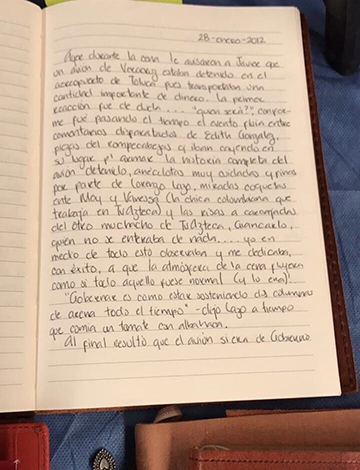 28-enero-2012
Ayer durante la cena le avisaron a Javier que
un avión de Veracruz estaba detenido en el
aeropuerto de Toluca pues transportaban una
cantidad importante de dinero. La primera
reacción fue de duda... "quién será?"; confor-
me fué pasando el tiempo el evento fluía entre
comentarios disparatados de Edith González,
piezas del rompecabezas q' iban cayendo en
su lugar p' armar la historia completa del
avión detenido, anécdotas muy cuidadas y finas
por parte de Lorenzo Lago, miradas coquetas
ante May y Vanessa (la chica colombiana que
trabaja en TvAzteca) y las risas a carcajadas
del otro muchacho de TvAzteca, Giancarlo,
quien no se enteraba de nada... yo en
medio de todo esto observaba y me dedicaba,
con éxito, a que la atmósfera de la cena fluyera
como si todo aquello fuese normal (y lo era)!
"Gobernar es como estar sosteniendo dos columnas
de arena todo el tiempo" -dijo Lago a tiempo
que comía un tomate con
Al final resultó que el avión si era de Gobierno